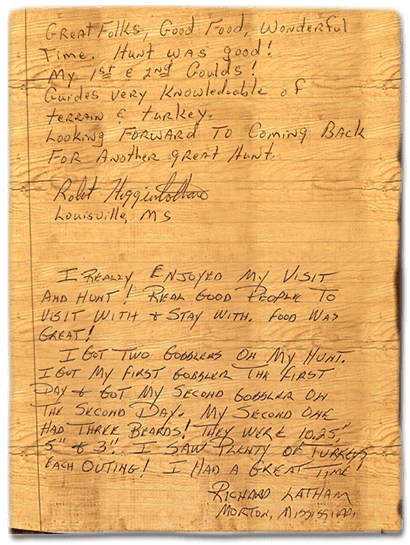 Great Folks, Good Food, Wonderful
Time. Hunt was good!
My 1st & 2nd Goulds!
Guides very Knowledgable of
terrain & turkey.
Looking Forward To Coming Back
For Another great Hunt.
Louisville, MS
I Really Enjoyed My Visit
And Hunt! Real Good People To
Visit With & Stay With. Food Was
Great!
I Got Two Gobblers On My Hunt.
I Got My First Gobbler The First
Day & Got My Second Gobbler On
The Second Day. My Second One
Had Three Beards! They Were 10.25",
5" & 3". I Saw Plenty of Turkeys
Each Outing! I Had A Great Time!
Richard Latham
Morton, Mississippi